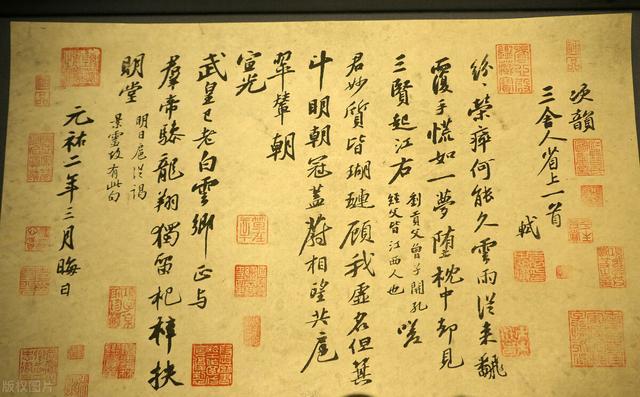 次韻
三舍人省上一首
軾
紛〻榮瘁何能久雲雨從来翻
覆手慌如一夢墮枕中却見
三賢起江右
劉貢父曾子開孔
經父皆江西人也
嗟
君妙質皆瑚璉顧我虛名但箕
斗明朝冠蓋蔚相望共扈
翠輦朝
宣光
武皇已老白雲鄉正與
羣帝驂龍翔獨留杞梓扶
明堂
明日扈從謁
景靈故有此句
元祐二年三月晦日
版权图片